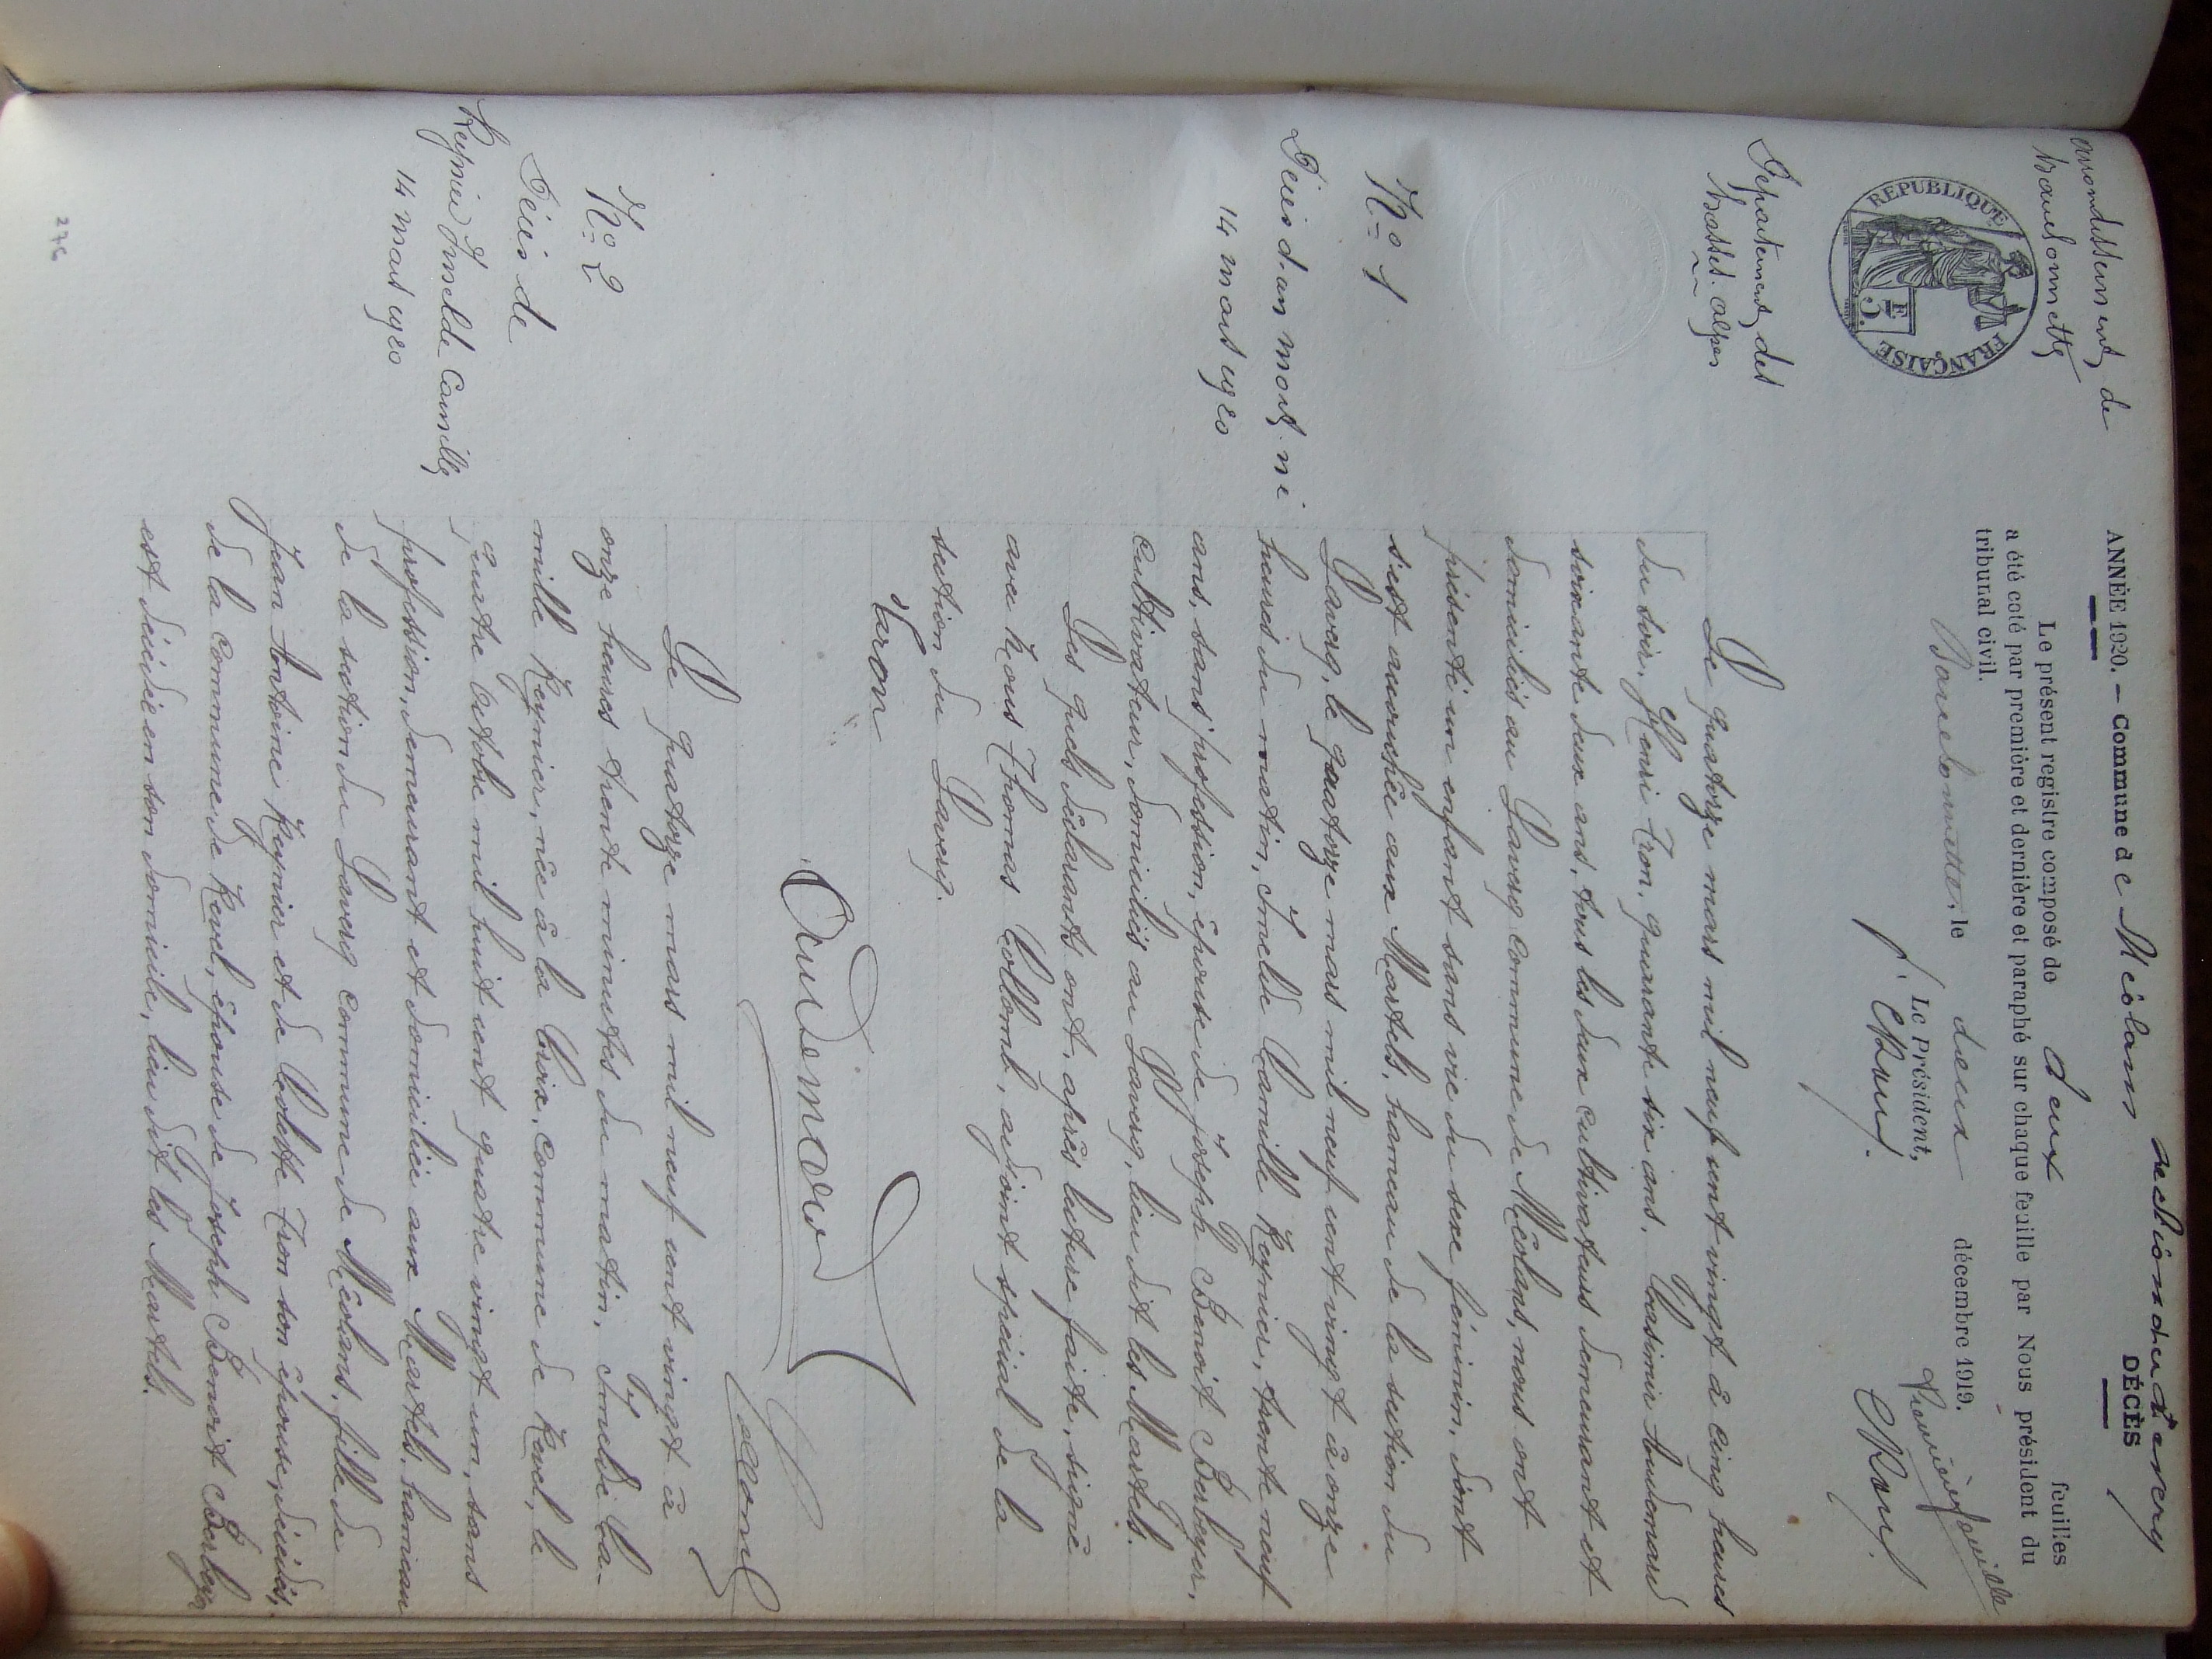 arrondissement de
Barcelonnette
RÉPUBLIQUE FRANÇAISE
5 F
Département des
Basses-Alpes
ANNÉE 1920. — Commune de Méolans section du Laverq
DÉCÈS
Le présent registre composé de deux feuilles
a été coté par première et dernière et paraphé sur chaque feuille par Nous président du
tribunal civil.
Barcelonnette, le deux décembre 1919.
Le Président,
N° 1
Décès d'un mort-né
14 mars 1920
Le quatorze mars mil neuf cent vingt à cinq heures
du soir, Henri Tron, quarante six ans, Casimir Audemard
soixante deux ans, tous les deux cultivateurs demeurant et
domiciliés au Laverq commune de Méolans, nous ont
présenté un enfant sans vie du sexe féminin, dont
s'est accouchée aux Martels, hameau de la section du
Laverq, le quatorze mars mil neuf cent vingt à onze
heures du matin, Imelde Camille Reynier, trente neuf
ans, sans profession, épouse de Joseph Benoit Berbeyer,
cultivateur, domiciliés au Laverq, lieu dit les Martels.
Les quels déclarants ont, après lecture faite, signé
avec Nous Thomas Collomb, adjoint spécial de la
section du Laverq.
Tron
Audemard
Collomb
N° 2
Décès de
Reynier Imelde Camille
14 mars 1920
Le quatorze mars mil neuf cent vingt à
onze heures trente minutes du matin, Imelde Ca-
mille Reynier, née à la Croix, commune de Revel, le
quatre Octobre mil huit cent quatre vingt un, sans
profession, demeurant et domiciliée aux Martels, hameau
de la section du Laverq commune de Méolans, fille de
Jean Antoine Reynier et de Colatte Tron son épouse, décédés,
de la commune de Revel, épouse de Joseph Benoit Berbeyer
est décédée en son domicile, lieu dit les Martels.
276